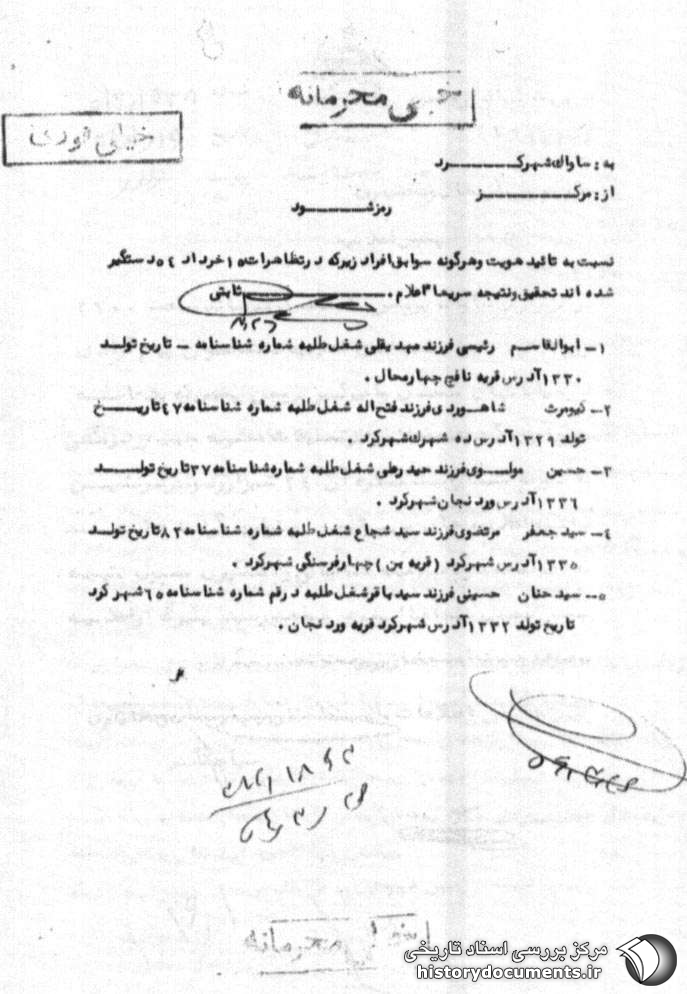 خیلی محرمانه
خیلی فوری
به : ساواک شهرکرد
از : مرکز
رمز شود
نسبت به تائید هویت و هرگونه سوابق افراد زیر که در تظاهرات ۱۵ خرداد ۵۴ دستگیر
شده اند تحقیق و نتیجه سریعا" اعلام . ثابتی
۱- ابوالقاسم رئیسی فرزند مهدیقلی شغل طلبه شماره شناسنامه - تاریخ تولد
۱۳۳۰ آدرس قریه نافچ چهارمحال .
۲- کیومرث شاهوردی فرزند فتح اله شغل طلبه شماره شناسنامه ۴۷ تاریخ
تولد ۱۳۲۹ آدرس ده شهرک شهرکرد .
۳- حسین مولوی فرزند حیدرعلی شغل طلبه شماره شناسنامه ۳۷ تاریخ تولد
۱۳۳۶ آدرس وردنجان شهرکرد .
۴- سید جعفر مرتضوی فرزند سید شجاع شغل طلبه شماره شناسنامه ۸۲ تاریخ تولد
۱۳۳۵ آدرس شهرکرد (قریه بن) چهارفرسنگی شهرکرد .
۵- سید حنان حسینی فرزند سید باقر شغل طلبه در قم شماره شناسنامه ۶۵ شهرکرد
تاریخ تولد ۱۳۳۲ آدرس شهرکرد قریه وردنجان .
خیلی محرمانه
مرکز بررسی اسناد تاریخی
historydocuments.ir